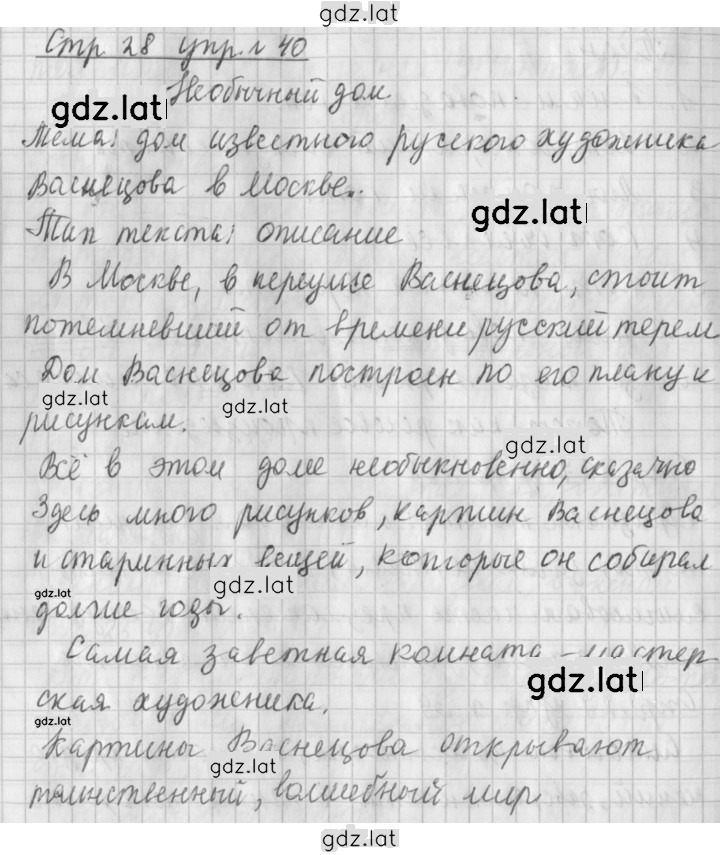 gdz.lat
Стр 28 упр. № 40
Необычный дом
gdz.lat
Тема: дом известного русского художника
Васнецова в Москве.
gdz.lat
Тип текста: описание
В Москве, в переулке Васнецова, стоит
потемневший от времени русский терем
Дом Васнецова построен по его плану и
gdz.lat gdz.lat
рисункам.
gdz.lat
Всё в этом доме необыкновенно, сказачно
Здесь много рисунков, картин Васнецова
и старинных вещей, которые он собирал
gdz.lat gdz.lat
долгие годы.
Самая заветная комната – мастер
gdz.lat
ская художника.
gdz.lat
Картины Васнецова открывают
gdz.lat
таинственный, волшебный мир
gdz.lat